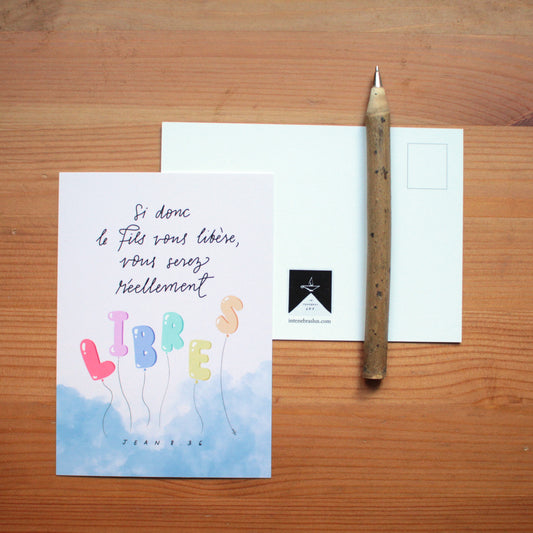 Si donc
le Fils vous libère,
vous serez
réellement
LIBRES
JEAN 8.36
intenebraslux.com